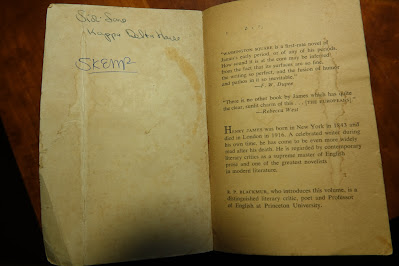 Kappa Delta House
SKEM²
"WASHINGTON SQUARE is a first-rate novel of
James's early period, or of any of his periods.
How sound it is at the core may be inferred
from the fact that its surfaces are so fine,
the writing so perfect, and the fusion of
and pathos in it so inevitable."
— F. W. Dupee
"There is no other book by James which has quite
the clear, sunlit charm of this . . . [THE EUROPEANS]."
—Rebecca West
HENRY JAMES was born in New York in 1843 and
died in London in 1916. A celebrated writer during
his own time, he has come to be even more widely
read after his death. He is regarded by contemporary
literary critics as a supreme master of English
prose and one of the greatest novelists
in modern literature.
R. P. BLACKMUR, who introduces this volume, is a
distinguished literary critic, poet and Professor
of English at Princeton University.